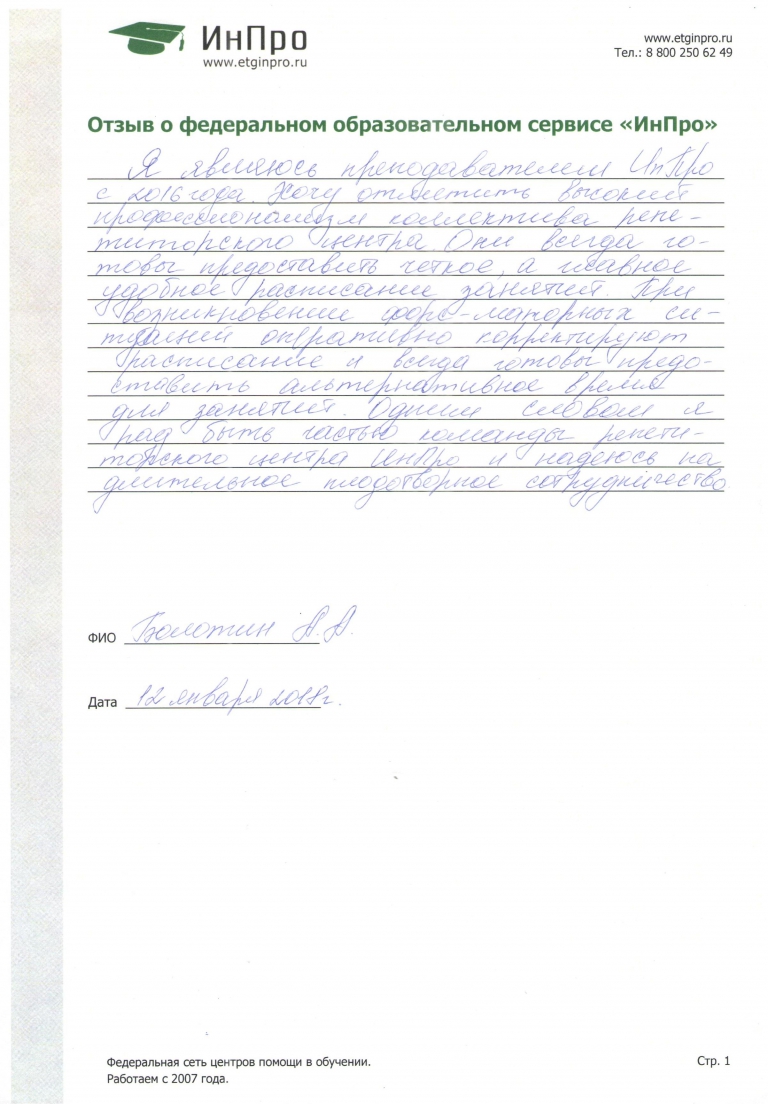 ИнПро
www.etginpro.ru
www.etginpro.ru
Тел.: 8 800 250 62 49
Отзыв о федеральном образовательном сервисе «ИнПро»
Я являюсь преподавателем ИнПро
с 2016 года. Хочу отметить высокий
профессионализм коллектива репе-
титорского центра. Они всегда го-
товы предоставить четкое, а главное
удобное расписание занятий. При
возникновении форс-мажорных си-
туаций оперативно корректируют
расписание и всегда готовы предо-
ставить альтернативное время
для занятий. Одним словом я
рад быть частью команды репети-
торского центра ИнПро и надеюсь на
длительное плодотворное сотрудничество
ФИО Болотин А.А.
Дата 12 января 2018г.
Федеральная сеть центров помощи в обучении.
Работаем с 2007 года.
Стр. 1